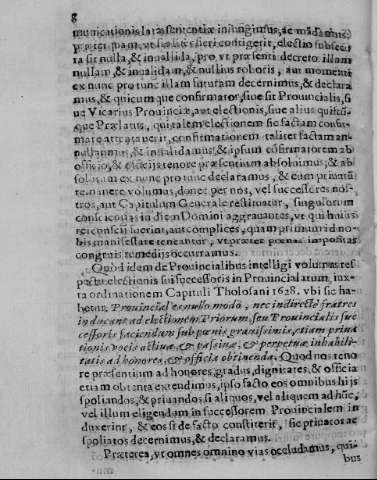 8
municationis latæ sententiæ iniungimus, ac mãdamus:
præterquam, vt si aliàs fieri contigerit, electio subsecu
ta sit nulla, & inualida, pro vt præsenti decreto illam
nullam, & inualidam, & nullius roboris, aut momenti
ex nunc pro tunc illam futuram decernimus, & declara
mus, & quicumque confirmator, siue sit Prouincialis, si
ue Vicarius Prouinciæ, aut electionis, siue alius quicũ-
que Prælatus, qui talem electionem sic factam confir-
mare attentauerit, confirmationem taliter factam an-
nullamus, & inualidamus, & ipsum confirmatorem ab
officio, & eiusdem tenore præsentium absoluimus, & ab
solutum ex nunc pro tunc declaramus, & eum priuatũ
remanere volumus, donec per nos, vel successores nos-
tros, aut Capitulum Generale restituatur, singulorum
conscientias in diem Domini aggrauantes, vt qui huius
rei conscij fuerint, aut complices, quam primum id no-
bis manifestare teneantur, vt præter pœnas impositas
congruis remedijs occurramus.
Quod idem de Prouincialibus intelligi volumus res
pectu electionis sui successoris in Prouincialatum, iux-
ta ordinationem Capituli Tholosani 1628. vbi sic ha-
betur. Prouinciales nullo modo, nec indirectè fratres
inducant ad electionem Priorum, seu Prouincialis suc
cessoris faciendam sub pœnis grauissimis, etiam priua
tionis vocis actiuæ & passiuæ, & perpetuæ inhabili-
tatis ad honores, & officia obtinenda. Quod nos teno
re præsentium ad honores, gradus, dignitates, & officia
etiam obtenta extendimus, ipso facto eos omnibus hijs
spoliandos, & priuandos si aliquos, vel aliquem ad hũc,
vel illum eligendam in successorem Prouincialem in
duxerint, & eos si de facto constiterit, sic priuatos ac
spoliatos decernimus, & declaramus.
Præterea, vt omnes omnino vias occludamus, qui-
bus